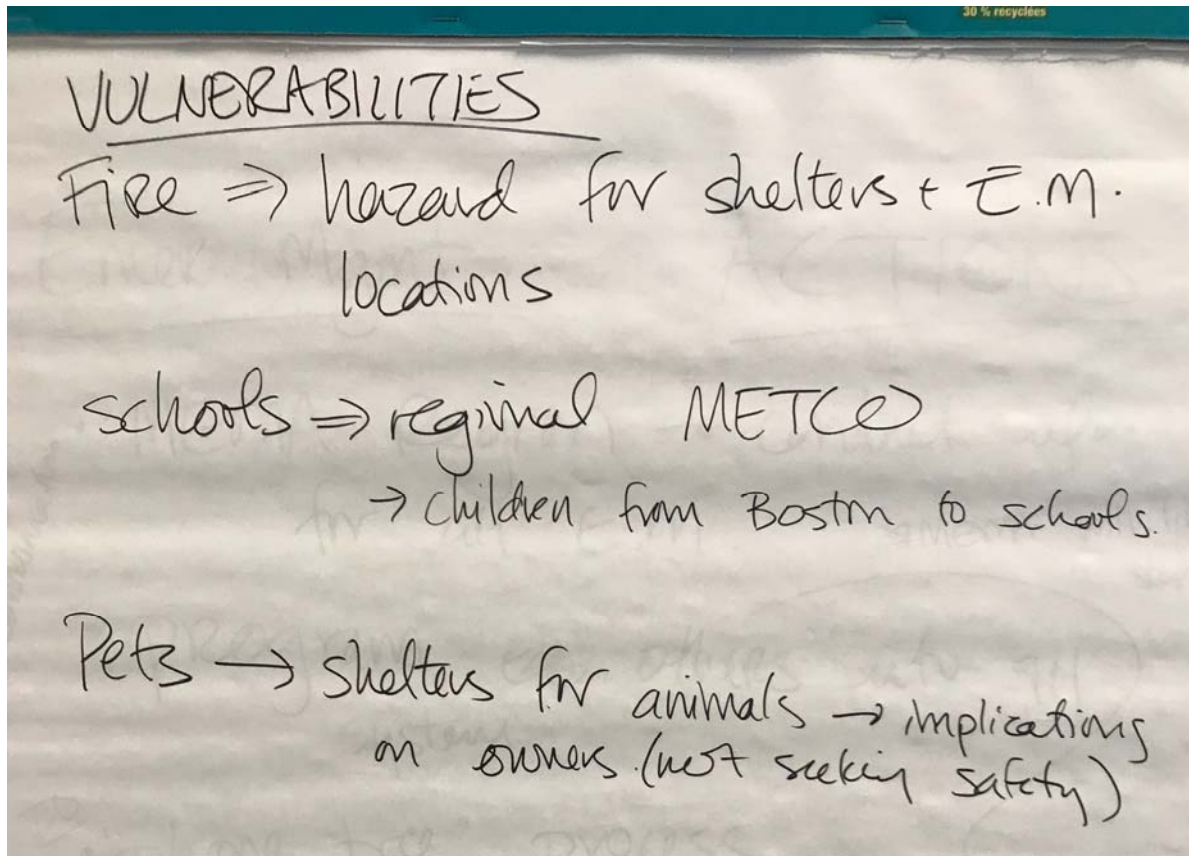 30 % recyclées
VULNERABILITIES
Fire ⇒ hazard for shelters + E.M.
locations
schools ⇒ regional METCO
→ children from Boston to schools.
Pets → shelters for animals → implications
on owners (not seeking safety)